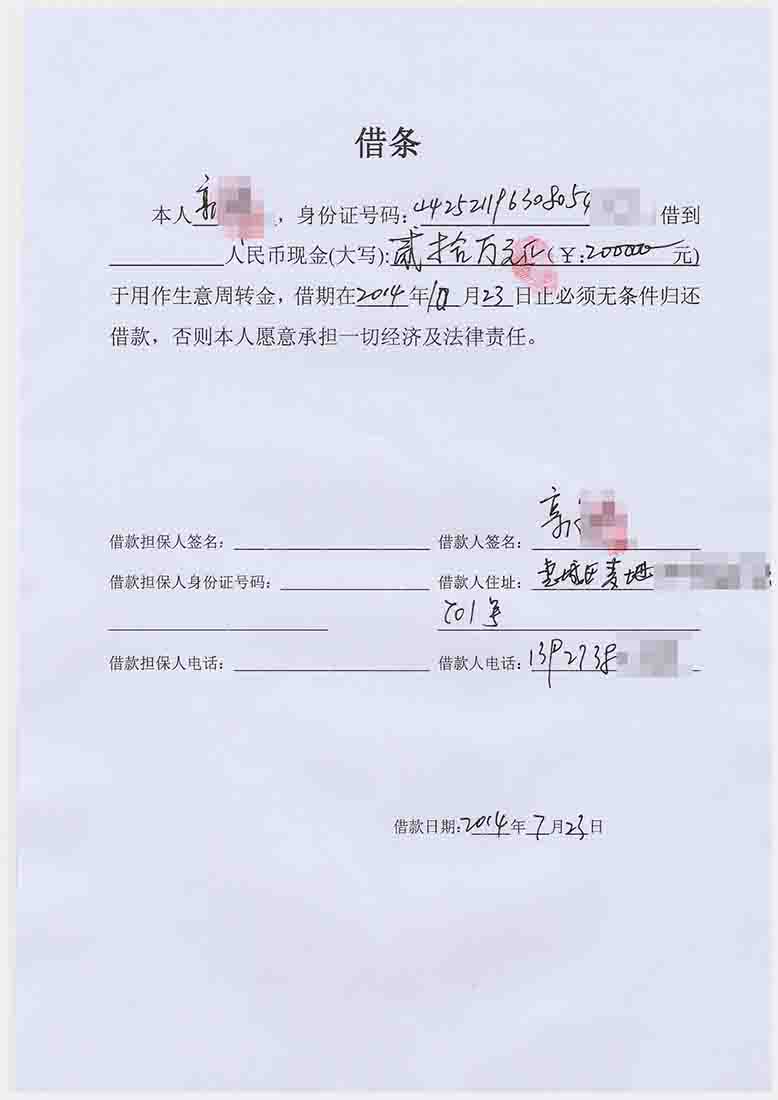 借条
本人郭，身份证号码：44252119630805借到
人民币现金(大写):贰拾万元正(￥:200000元)
于用作生意周转金，借期在2014年10月23日止必须无条件归还
借款，否则本人愿意承担一切经济及法律责任。
借款担保人签名： 借款人签名：郭
借款担保人身份证号码： 借款人住址：惠城区麦地
701号
借款担保人电话： 借款人电话：1392738
借款日期:2014年7月23日